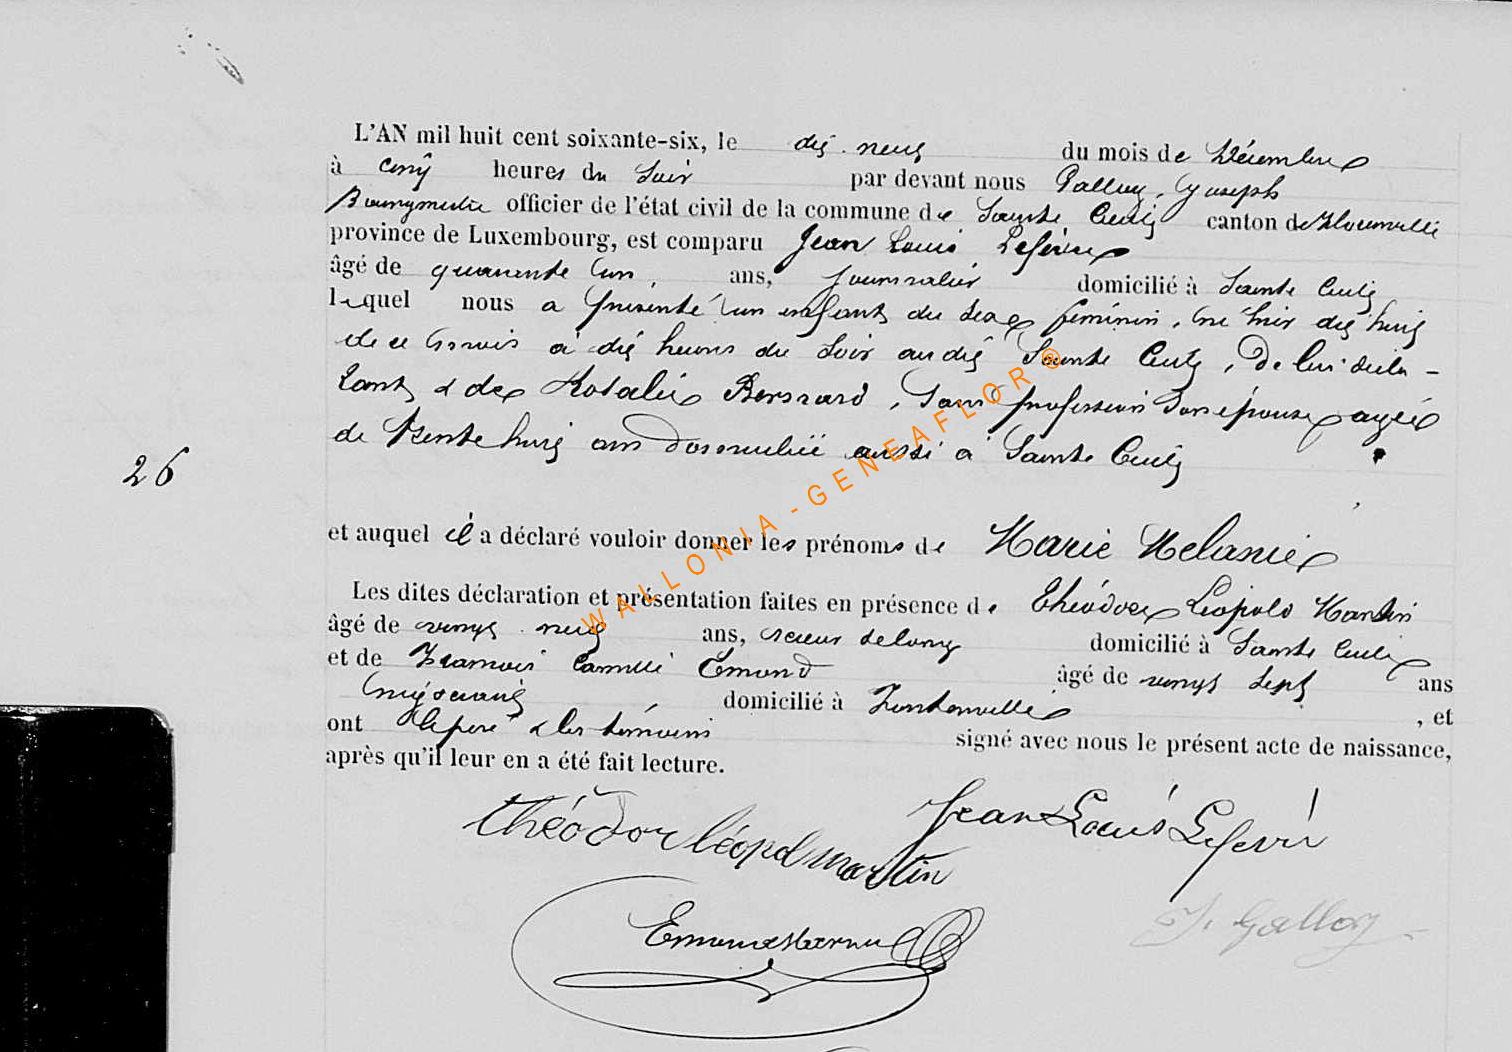 L'AN mil huit cent soixante-six, le dix neuf du mois de Décembre
à cinq heures du soir par devant nous Galloy, Joseph
Bourgmestre officier de l'état civil de la commune de Sainte Cecile canton de Florenville
province de Luxembourg, est comparu Jean Louis Lefèvre
âgé de quarante un ans, journalier domicilié à Sainte Cecile
lequel nous a présenté un enfant du sexe féminin, né hier dix huit
de ce mois à dix heures du soir au dit Sainte Cecile, de lui décla-
rant & de Rosalie Bernard, sans profession son épouse agée
de trente huit ans domiciliée aussi à Sainte Cecile
26
et auquel il a déclaré vouloir donner les prénoms de Marie Melanie
Les dites déclaration et présentation faites en présence de Théodore Léopold Martin
âgé de vingt neuf ans, scieur de long domicilié à Sainte Cecile
et de François Camille Emond âgé de vingt sept ans
domicilié à Fontenoille , et
ont le père & les témoins signé avec nous le présent acte de naissance,
après qu'il leur en a été fait lecture.
théodor léopol martin Jean Louis Lefevre
Emond
J. Galloy
WALLONIA - GENEAFLOR ®